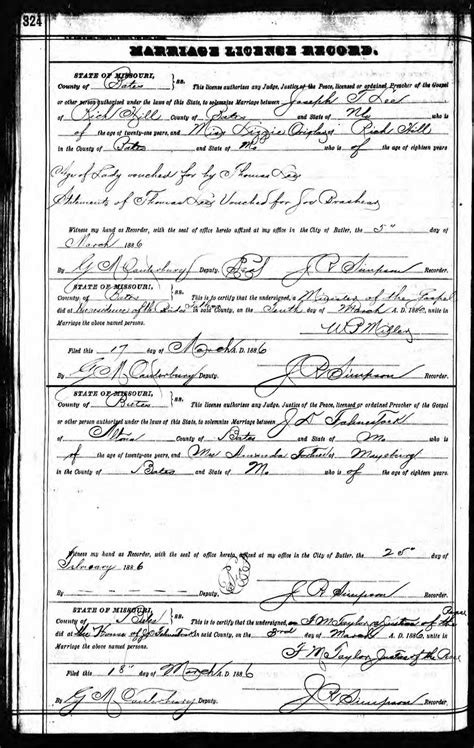 324
MARRIAGE LICENSE RECORD.
STATE OF MISSOURI,
County of Bates ss. This license authorizes any Judge, Justice of the Peace, licensed or ordained Preacher of the Gospel
or other person authorized under the laws of this State, to solemnize Marriage between Joseph T Lee
of Rich Hill County of Bates and State of Mo
of the age of twenty-one years, and Miss Lizzie Rich Hill
in the County of Bates and State of Mo who is of age of eighteen years
Age of Lady vouched for by Thomas Lee
Statements of Thomas Lee Vouched for Jos Brashear
Witness my hand as Recorder, with the seal of office hereto affixed at my office in the City of Butler, the 5" day of
March 1886
By G M Canterbury Deputy. Seal J R Simpson Recorder.
STATE OF MISSOURI,
County of Bates ss. This is to certify that the undersigned, a Minister of the Gospel
did at the residence of the Brides Father in said County, on the day of March A. D. 1886, unite in
Marriage the above named persons.
Filed this 17 day of March A. D. 1886
By G M Canterbury Deputy. J R Simpson Recorder.
STATE OF MISSOURI,
County of Bates ss. This license authorizes any Judge, Justice of the Peace, licensed or ordained Preacher of the Gospel
or other person authorized under the laws of this State, to solemnize Marriage between J D Fahnestock
of Altona County of Bates and State of Mo.
of the age of twenty-one years, and Mrs Amanda Mayesburg
in the County of Bates and State of Mo. who is of the age of eighteen years.
Witness my hand as Recorder, with the seal of office hereto affixed at my office in the City of Butler, the 25" day of
February 1886
By Deputy. J R Simpson Recorder.
STATE OF MISSOURI,
County of Bates ss. This is to certify that the undersigned, F M Taylor a Justice of the Peace
did at the Home of J D Fahnestock in said County, on the 3rd day of March A. D. 1886, unite in
Marriage the above named persons.
F M Taylor Justice of the Peace
Filed this 18" day of March A. D. 1886
By G M Canterbury Deputy. J R Simpson Recorder.